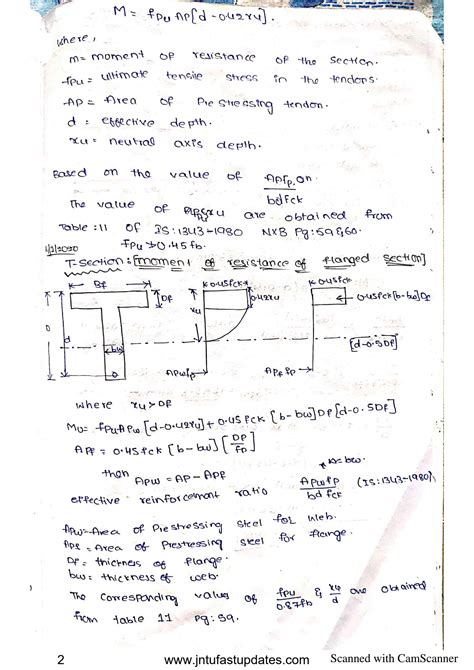 M = fpu Ap[d-0.42xu].
where,
m = moment of resistance of the section.
fpu = ultimate tensile stress in the tendons.
Ap = Area of Prestressing tendon.
d = effective depth.
xu = neutral axis depth.
Based on the value of Apfp on
bdfck
The value of are obtained from
Table :11 of IS:1343-1980 NXB Pg:59&60.
fpu > 0.45fb.
T-Section: [moment of resistance of flanged section]
Bf
0.45fck
0.45fck[b-bw]Df
Df
xu
0.42xu
D
d
bw
[d-0.5Df]
Apwfp
Apffp
where xu>Df
Mu = fpuApw[d-0.42xu] + 0.45fck[b-bw]Df[d-0.5Df]
Apf = 0.45fck[b-bw][Df/fp]
then Apw = AP-APf
b=bw.
effective reinforcement ratio Apwfp (IS:1343-1980).
bd fck
Apw=Area of Prestressing steel for web.
Apf = Area of Prestressing steel for flange.
Df = thickness of flange.
bw = thickness of web.
The corresponding values of fpu/0.87fb & xu/d are obtained
from table 11 pg:59.
2 www.jntufastupdates.com Scanned with CamScanner